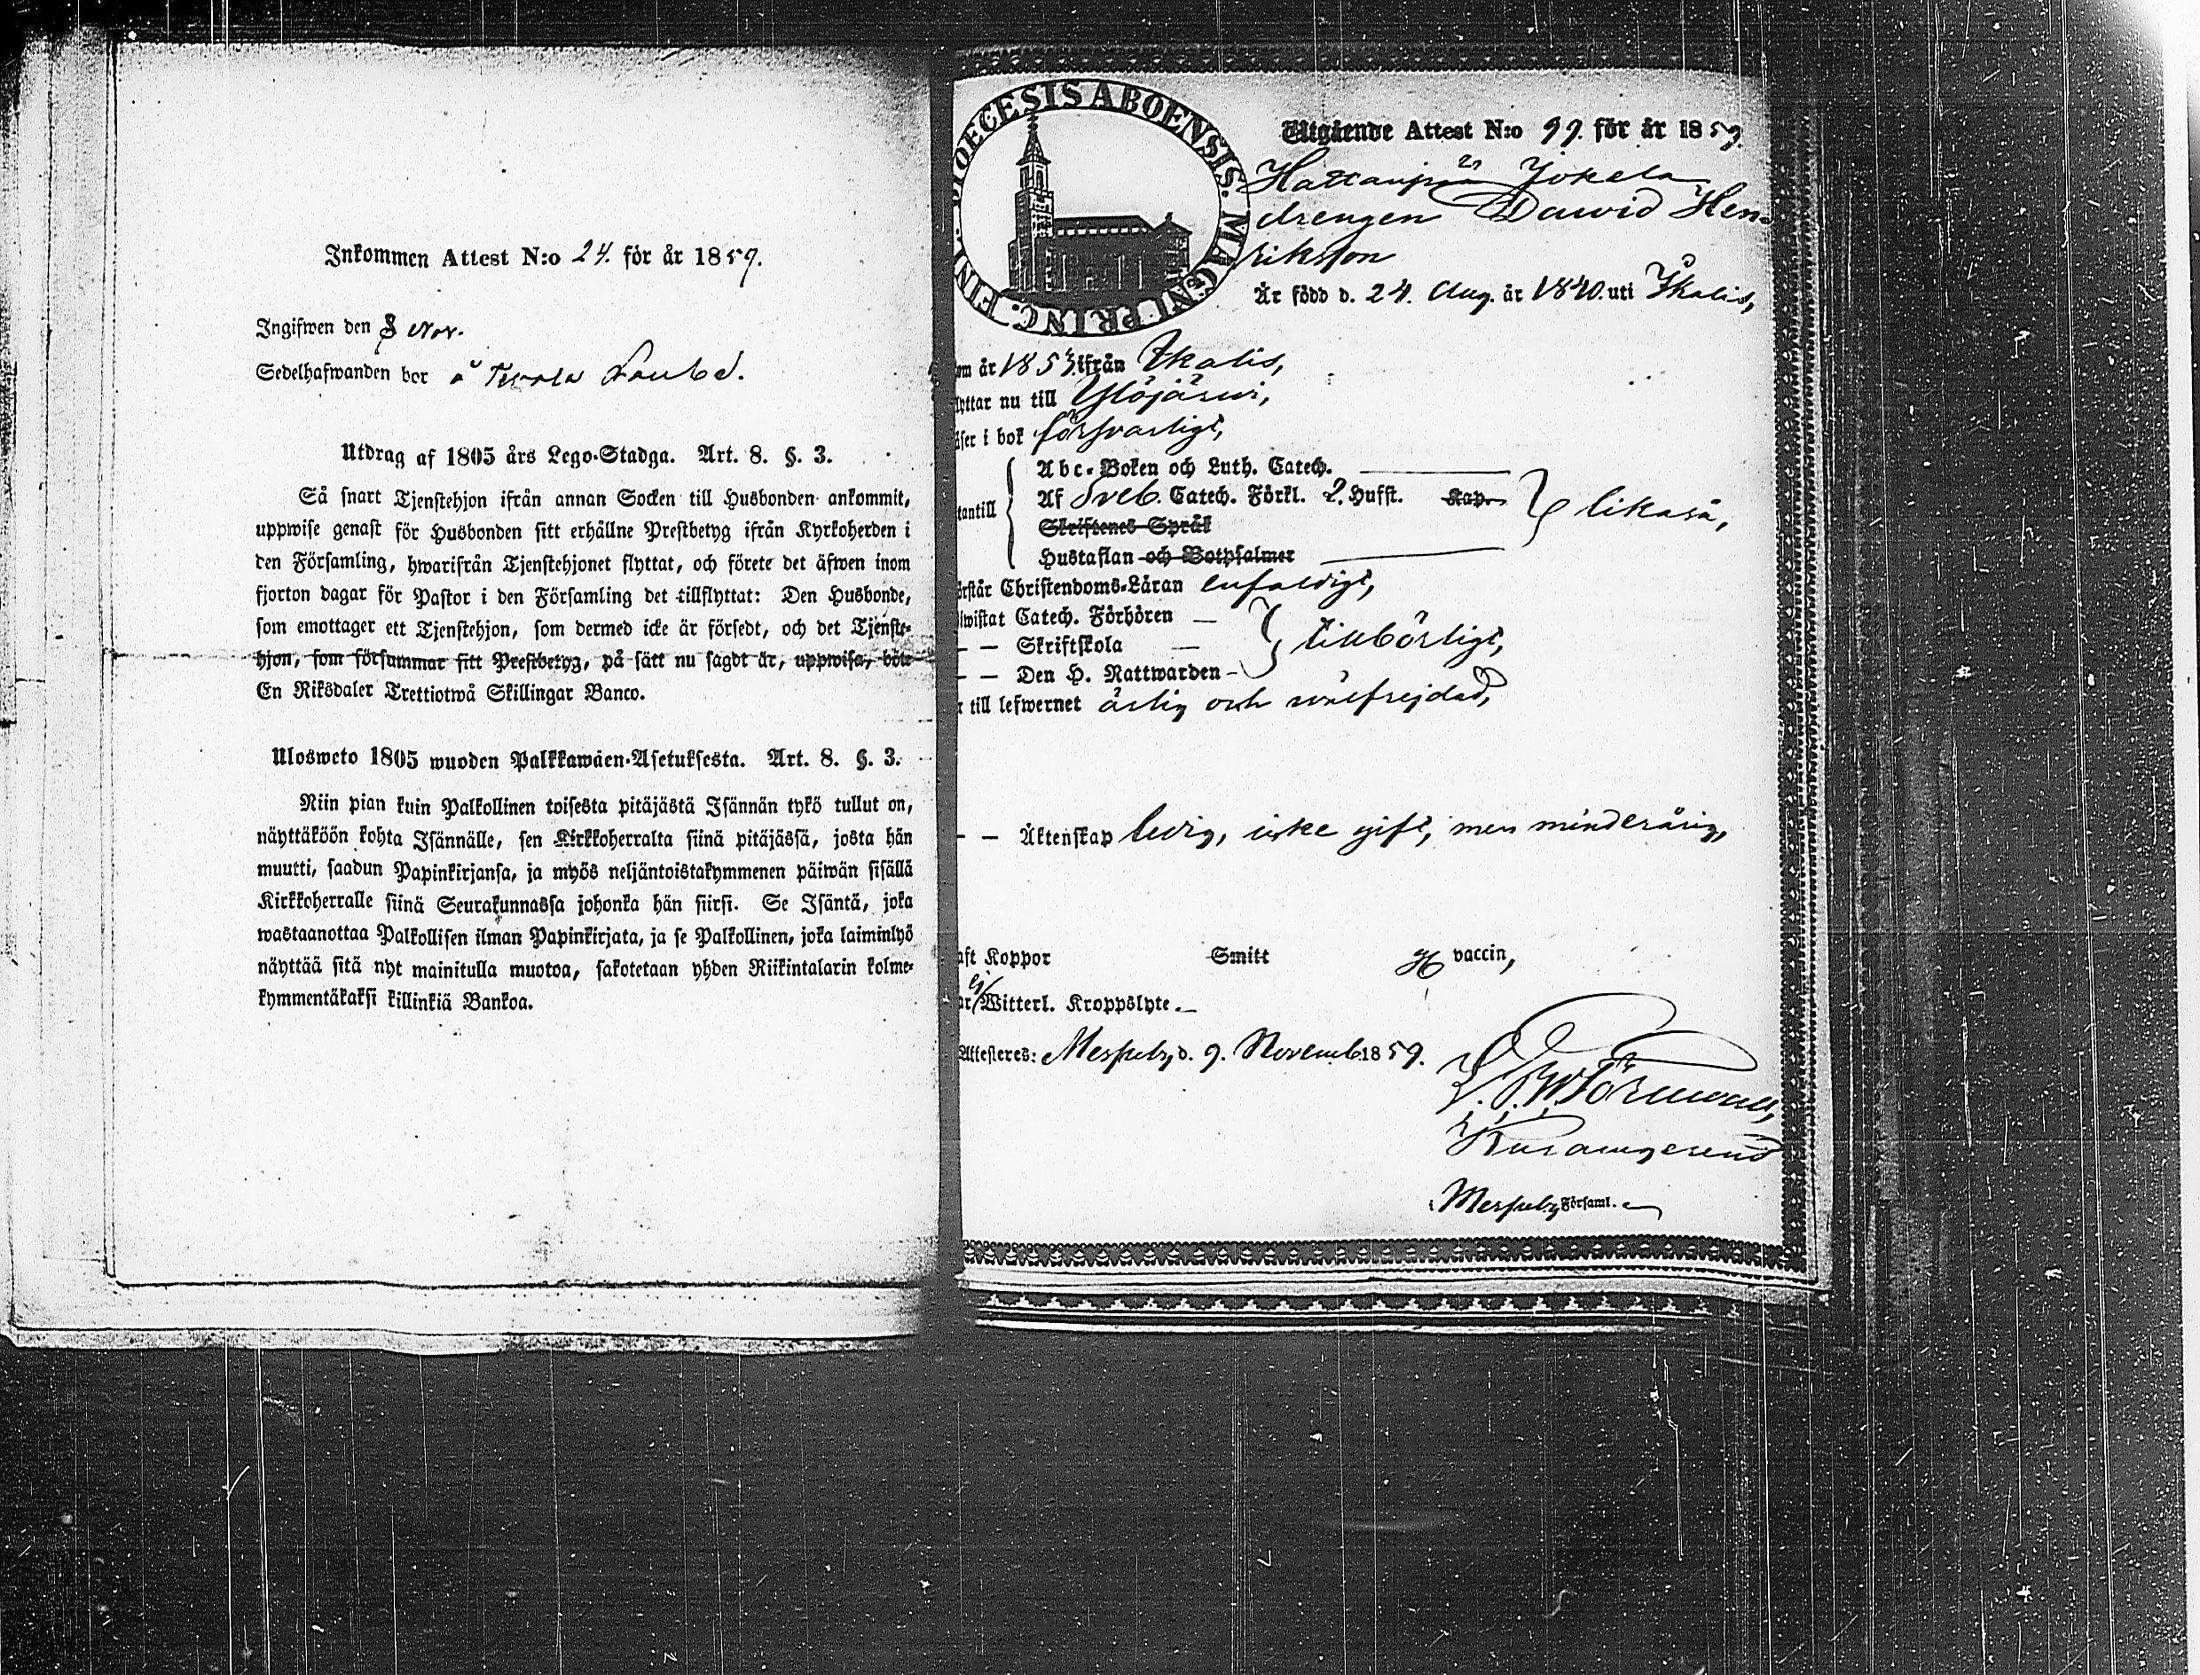 Inkommen Attest N:o 24. för år 1859.
Ingifwen den 8 Nov.
Sedelhafwanden bor å
Utdrag af 1805 års Lego-Stadga. Art. 8. §. 3.
Så snart Tjenstehjon ifrån annan Socken till Husbonden ankommit,
uppwise genast för Husbonden sitt erhållne Prestbetyg ifrån Kyrkoherden i
den Församling, hwarifrån Tjenstehjonet flyttat, och förete det äfwen inom
fjorton dagar för Pastor i den Församling det tillflyttat: Den Husbonde,
som emottager ett Tjenstehjon, som dermed icke är försedt, och det Tjenste-
hjon, som försummar sitt Prestbetyg, på sätt nu sagdt är, uppwisa, böte
En Riksdaler Trettiotwå Skillingar Banco.
Ulosweto 1805 wuoden Palkkawäen-Asetuksesta. Art. 8. §. 3.
Niin pian kuin Palkollinen toisesta pitäjästä Isännän tykö tullut on,
näyttäköön kohta Isännälle, sen Kirkkoherralta siinä pitäjässä, josta hän
muutti, saadun Papinkirjansa, ja myös neljäntoistakymmenen päiwän sisällä
Kirkkoherralle siinä Seurakunnassa johonka hän siirsi. Se Isäntä, joka
wastaanottaa Palkollisen ilman Papinkirjata, ja se Palkollinen, joka laiminlyö
näyttää sitä nyt mainitulla muotoa, sakotetaan yhden Riikintalarin kolme-
kymmentäkaksi killinkiä Bankoa.
DIOECESIS ABOENSIS. MAGNI PRINC. FINL.
Utgående Attest N:o 99. för år 1859.
Jokela
drengen Dawid Hen-
rikson
Är född d. 24. Aug. år 1840. uti Ikalis,
om år 1853 ifrån Ikalis,
lyttar nu till Ylöjärvi,
äser i bok försvarligt,
Abc-Boken och Luth. Catech.
tantill Af Sveb. Catech. Förkl. 2. Hufst. Kap. likaså,
Skriftenes Språk
Hustaflan och Botpsalmer
örstår Christendoms-Läran enfaldigt,
lwistat Catech. Förhören
— — Skriftskola — tillbörligt,
— — Den H. Nattwarden -
r till lefwernet ärlig och wälfrejdad,
— — Äktenskap ledig, icke gift, men minderårig,
aft Koppor Smitt vaccin,
ej
ar Witterl. Kroppslyte.
Attesteres: d. 9. Novemb. 1859.
i Församl.